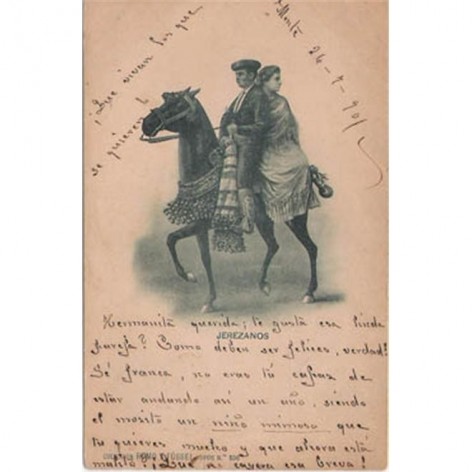 ¡Que vivan los que
se quieren!
Monte 26-7-901
JEREZANOS
Hermanita querida; te gusta esa linda
pareja? Como deben ser felices, verdad?
Sé franca, no eras tú capaz de
estar andando así un año, siendo
el mozito un niño mimoso que
tu quieres mucho y que ahora está
malito? ¡Qué